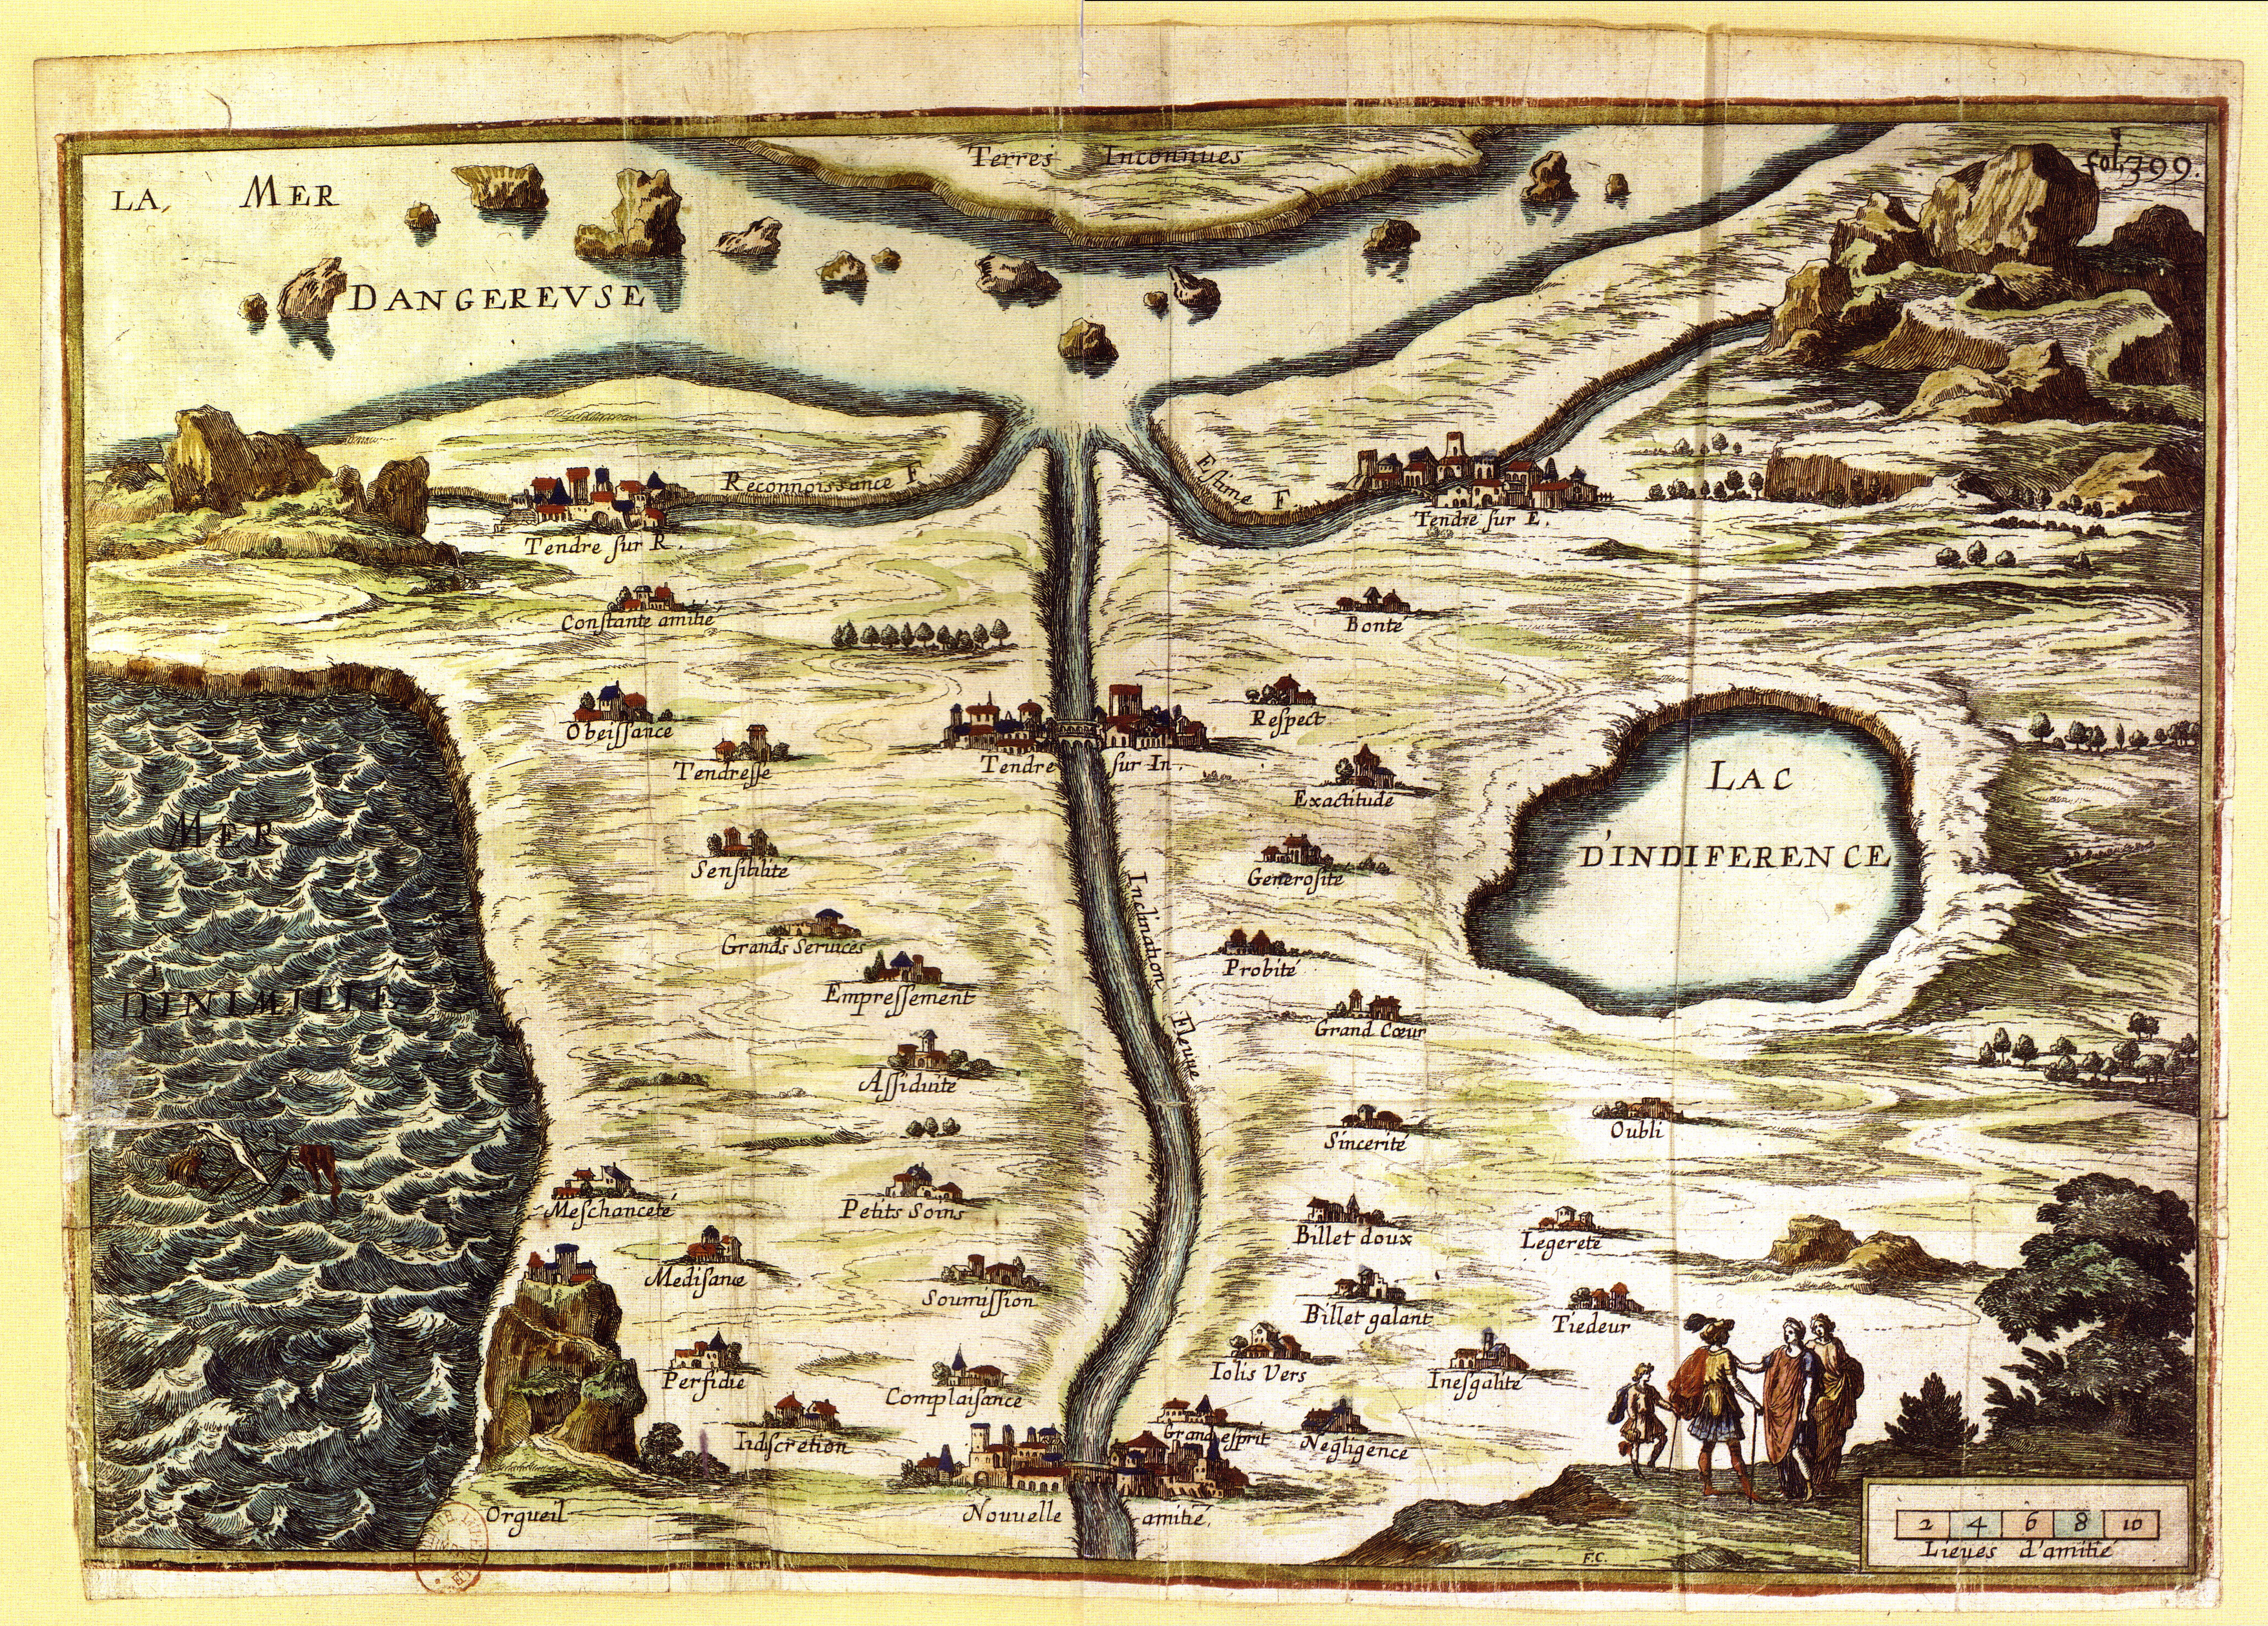 Terres Inconnues
fol. 399.
LA, MER
DANGEREVSE
Reconnoissance F
Estime F
Tendre sur R.
Tendre sur E.
Constante amitié
Bonté
Obeissance
Respect
Tendresse
Tendre sur In.
Exactitude
LAC
D'INDIFERENCE
MER
D'INIMITIE
Sensibilité
Generosité
Inclination
Fleuue
Grands Seruices
Probité
Empressement
Grand Cœur
Assiduité
Sincerité
Oubli
Meschanceté
Petits Soins
Billet doux
Legereté
Medisance
Soumission
Billet galant
Tiedeur
Perfidie
Complaisance
Iolis Vers
Inesgalité
Indiscretion
Grand esprit
Negligence
Orgueil
Nouuelle amitié.
2 4 6 8 10
Lieues d'amitié
F.C.